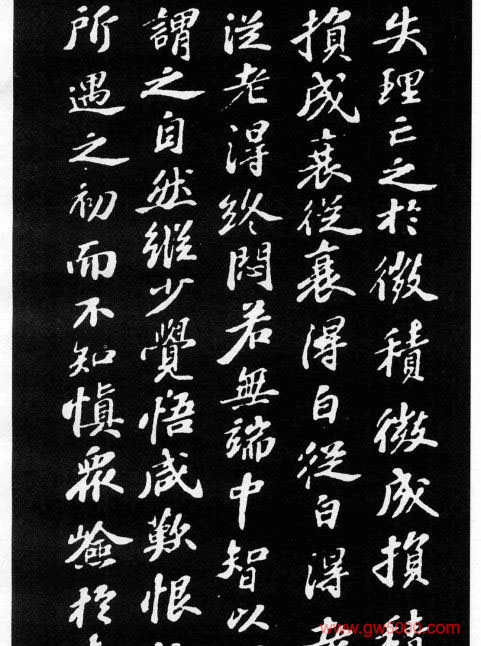 失理亡之於微積微成損積
損成衰從衰得白從白得
從老得終悶若無端中智以
謂之自然縱少覺悟咸歎恨
所遇之初而不知慎眾險於
www.gw5000.com